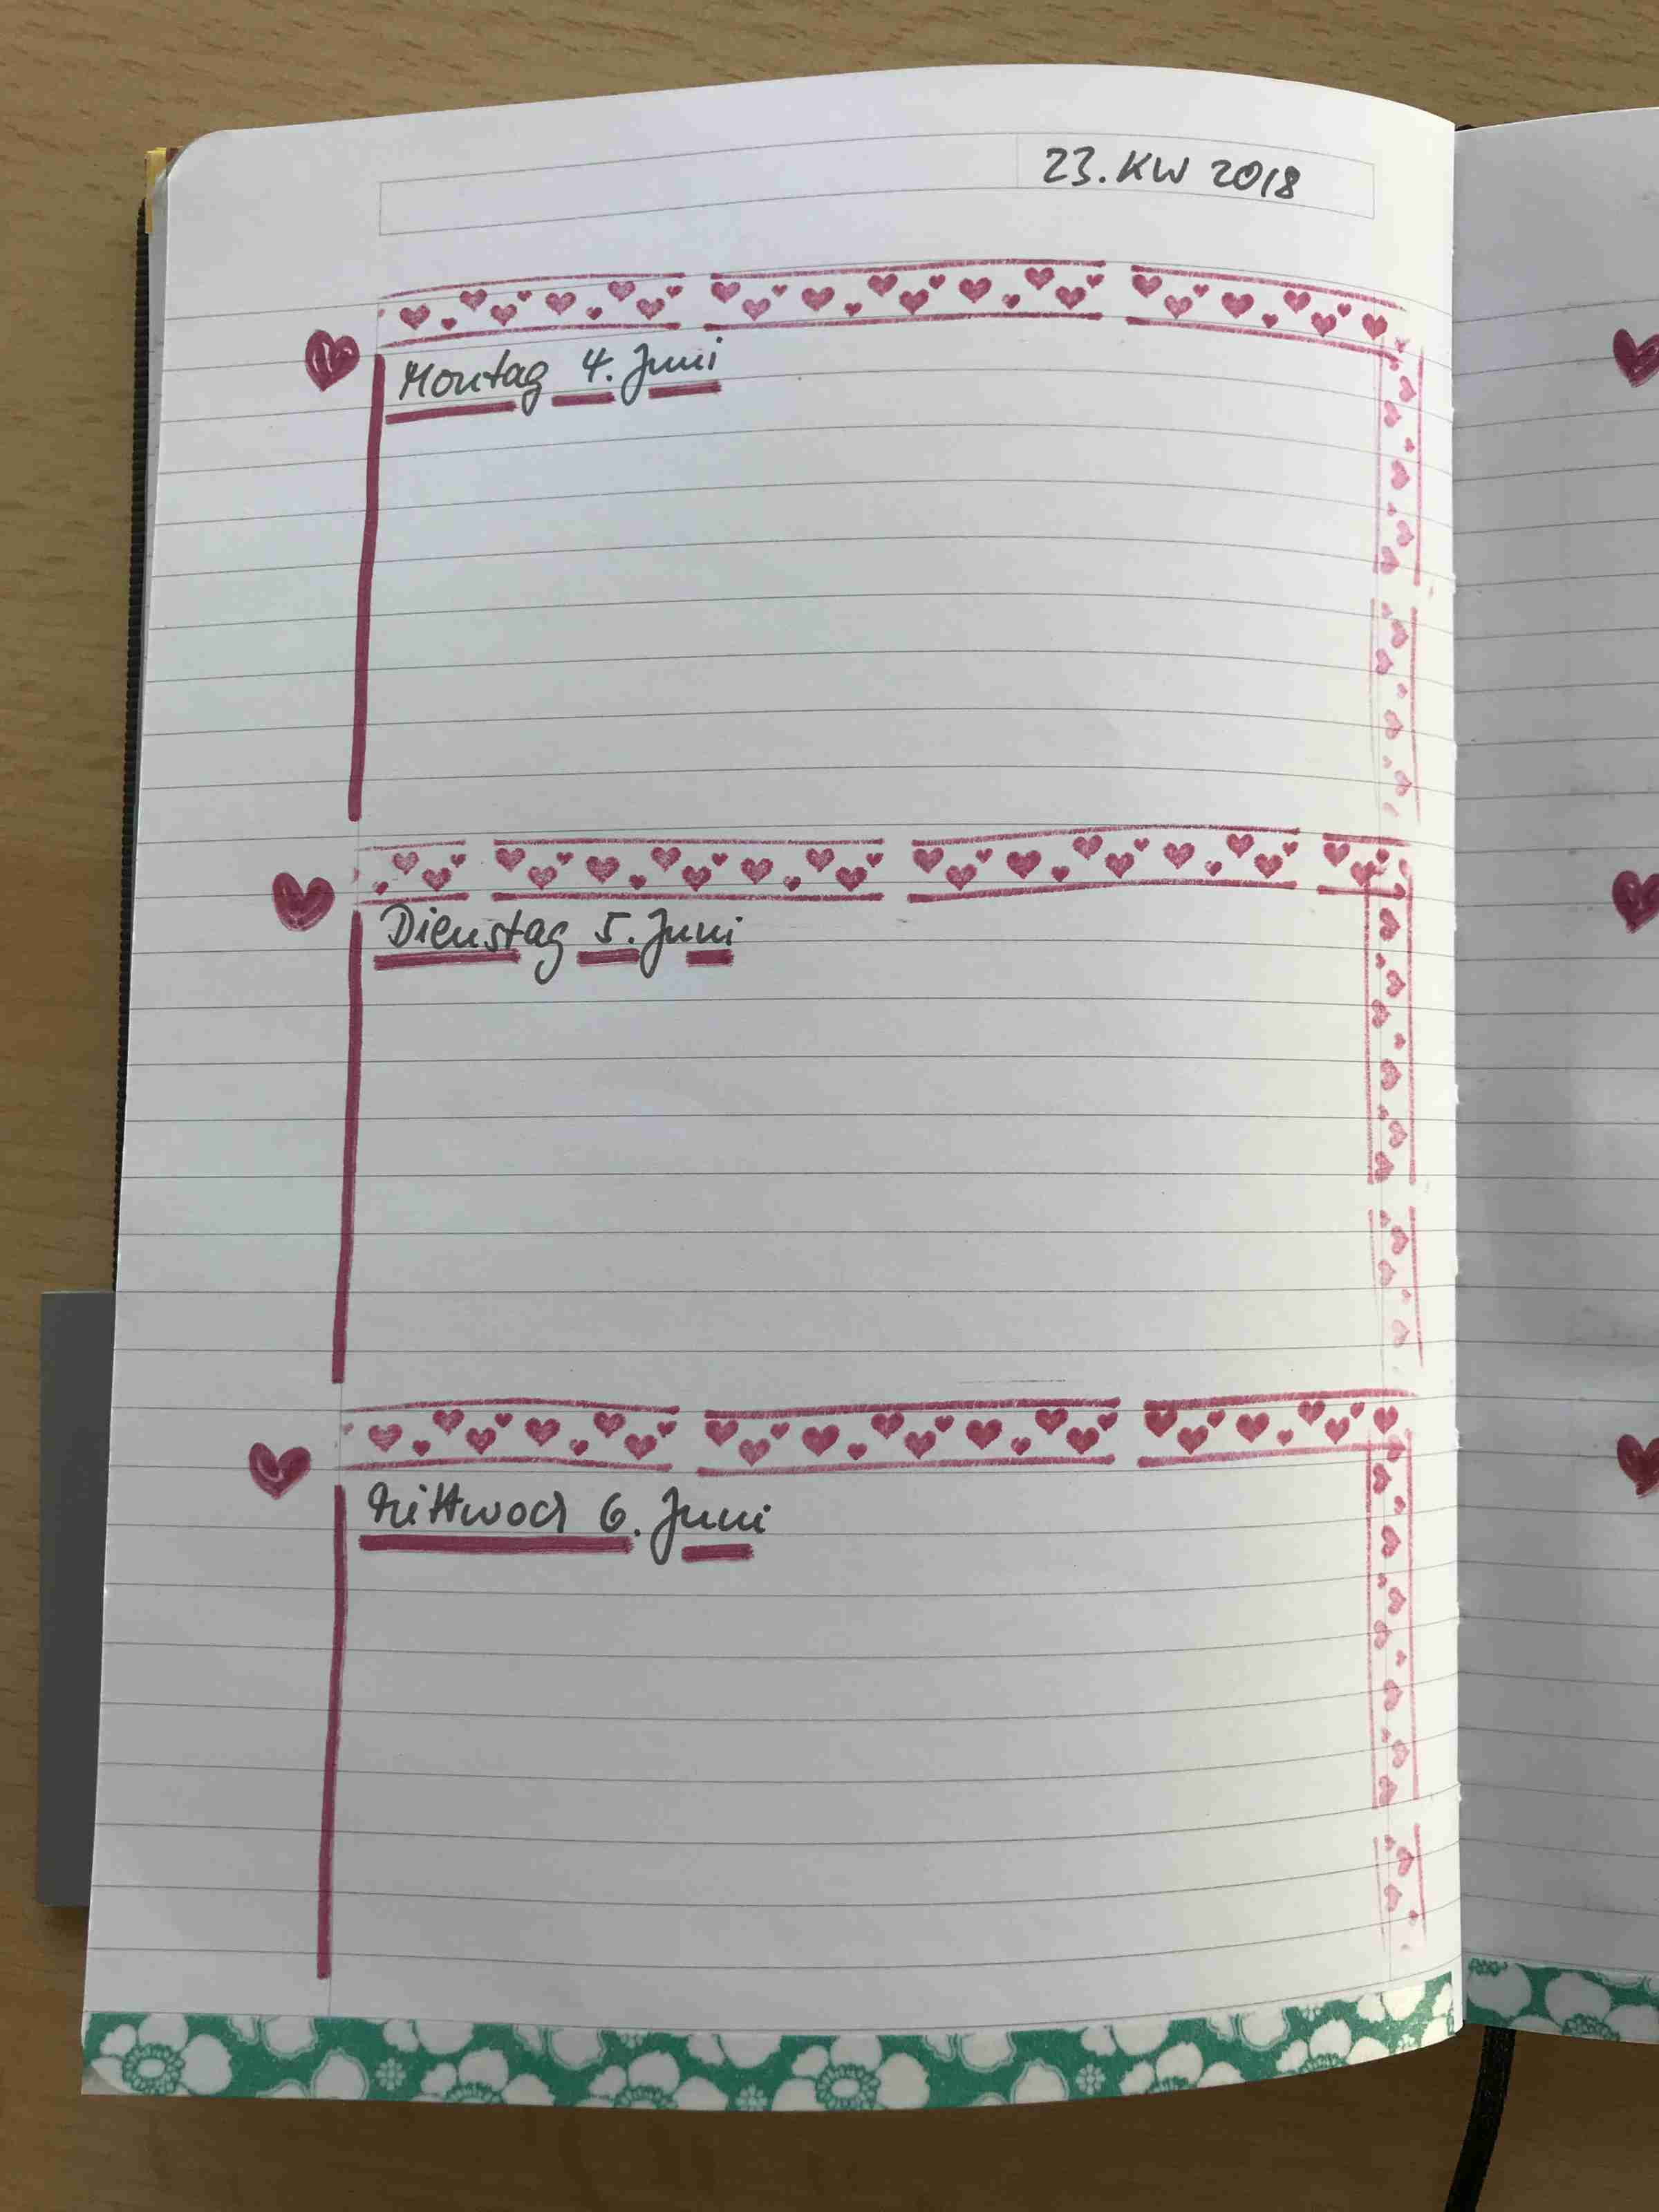 23. KW 2018
Montag 4. Juni
Dienstag 5. Juni
Mittwoch 6. Juni